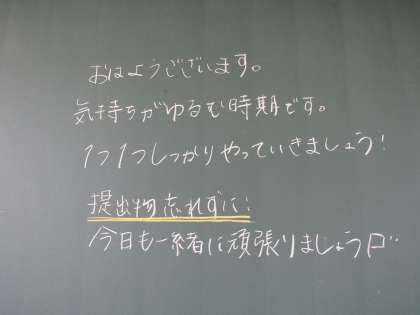 おはようございます。
気持ちがゆるむ時期です。
1つ1つしっかりやっていきましょう!
提出物忘れずに!
今日も一緒に頑張りましょう